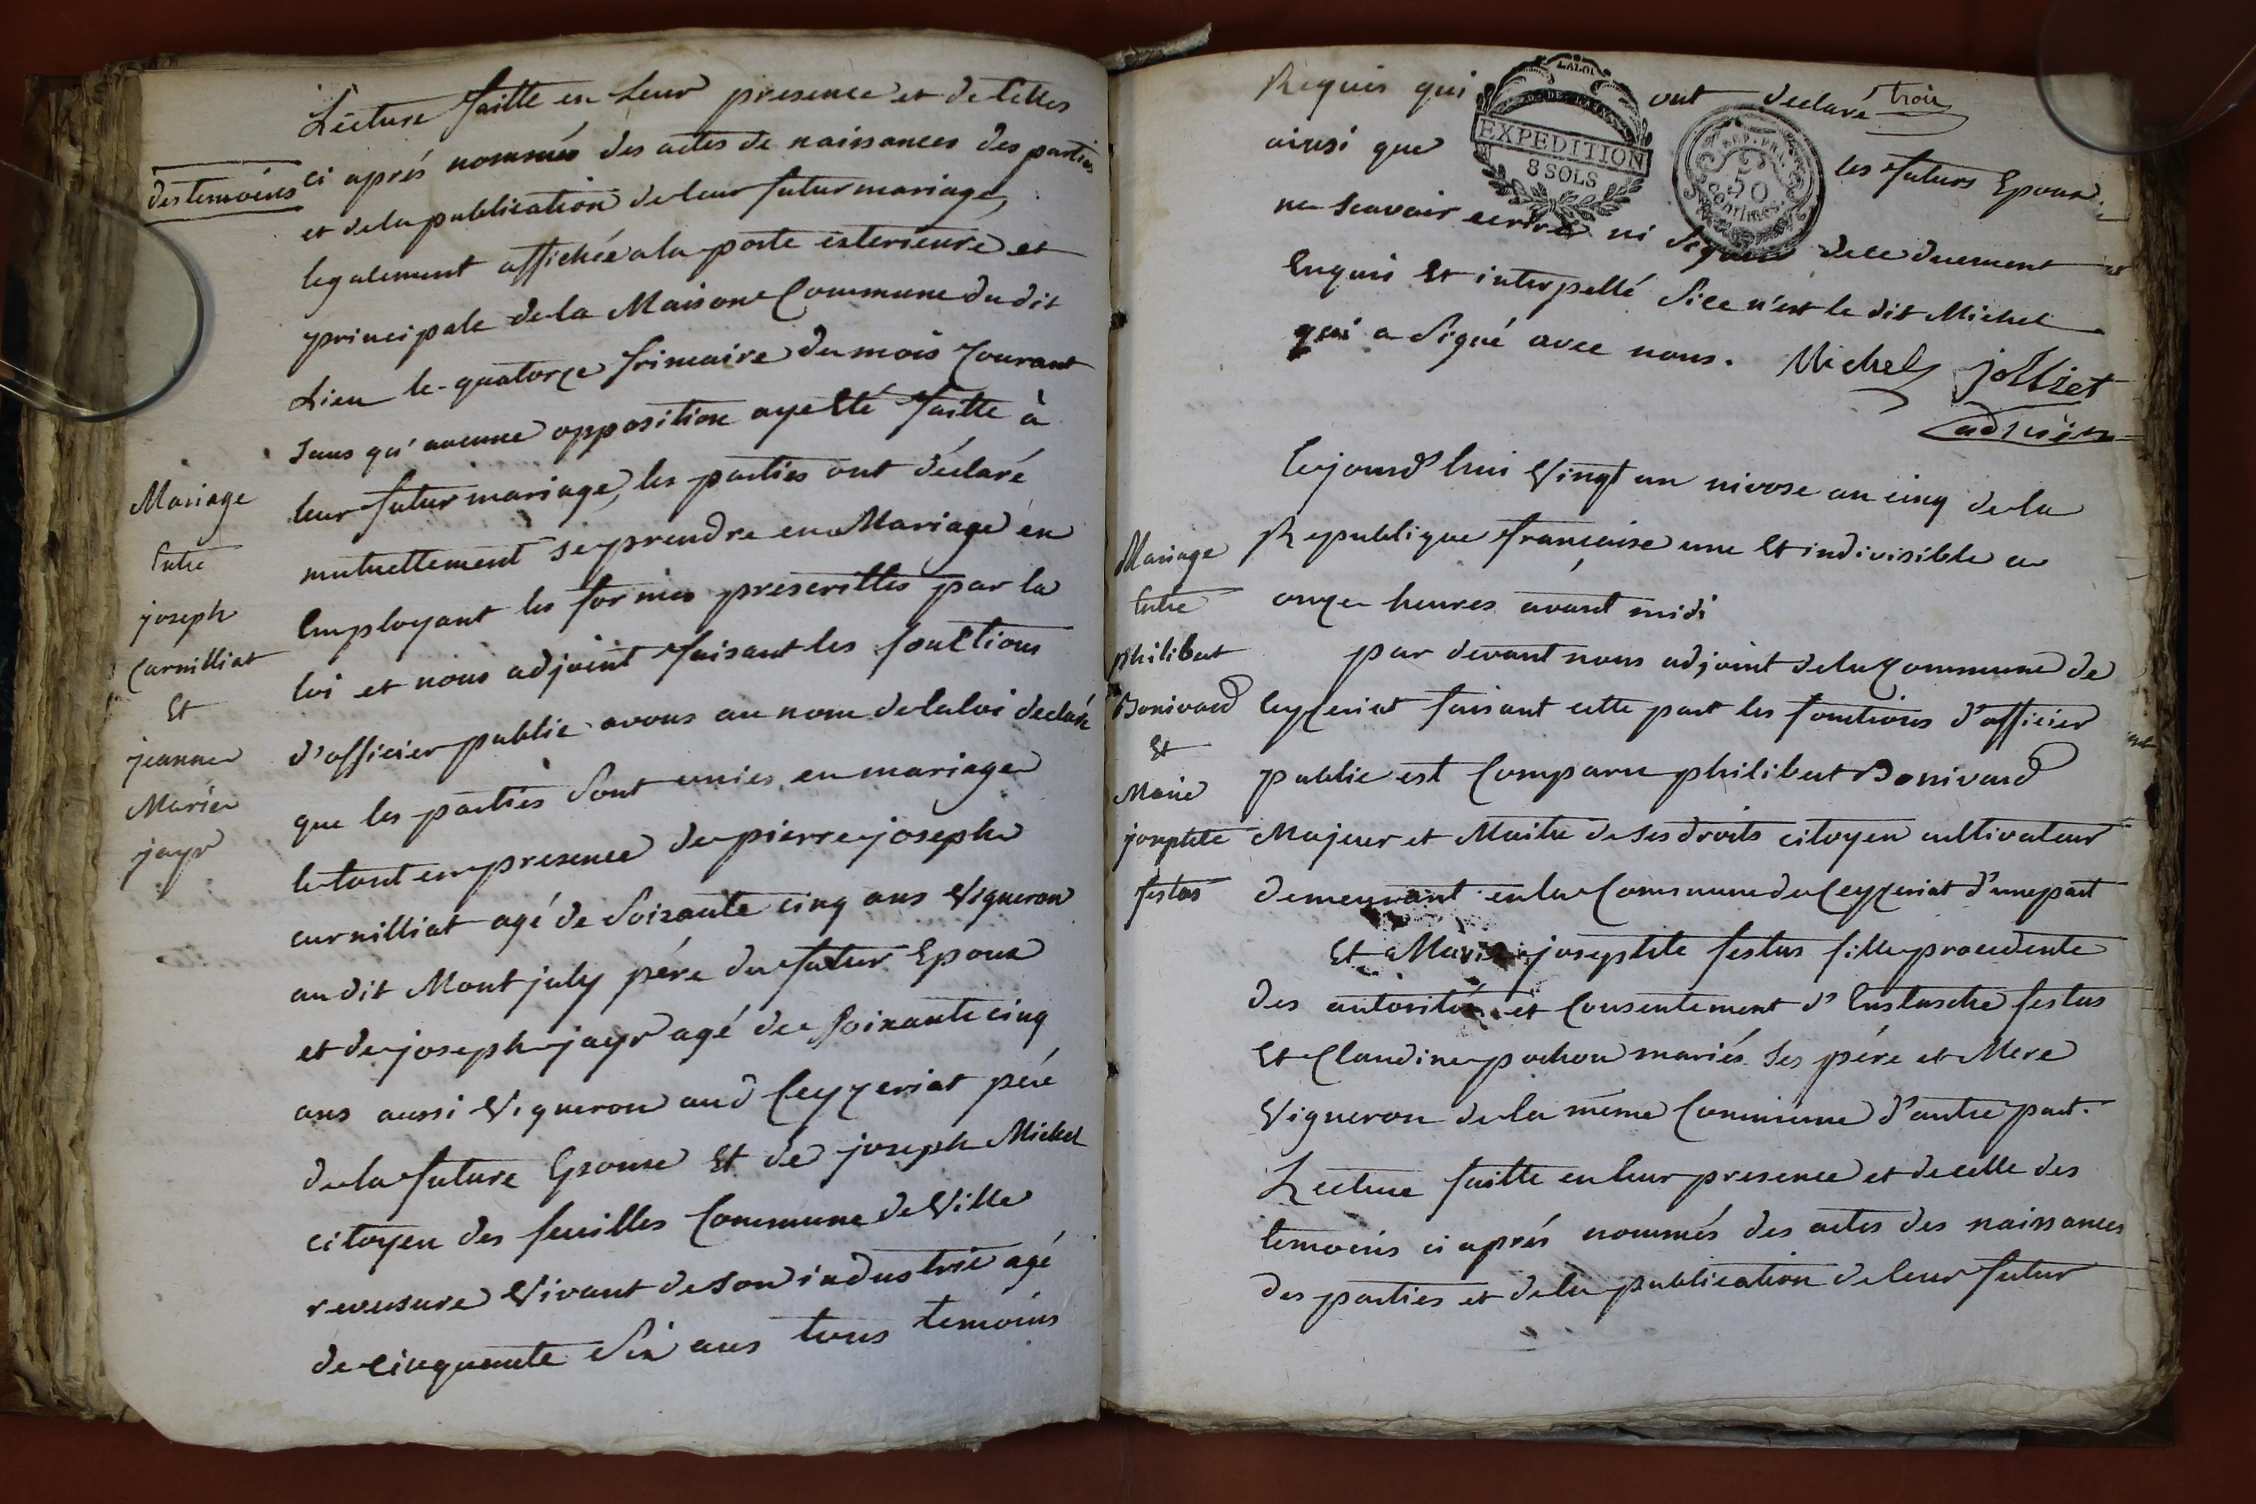 Lecture faitte en leur presence et de celles
des temoins ci aprés nommés des actes de naissances des parties
et de la publication de leur futur mariage,
legalement affichée a la porte exterieure et
principale de la Maison Commune dudit
Lieu le quatorze frimaire du mois Courant
sans qu'aucune opposition aye Eté faitte à
leur futur mariage, les parties ont déclaré
mutuellement se prendre en Mariage en
Employant les formes prescrittes par la
loi et nous adjoint faisant les fonctions
d'officier public avons au nom de la loi declaré
que les parties sont unies en mariage
le tout en presence de pierre joseph
curnilliat agé de soixante cinq ans Vigneron
au dit Montjuly pére du futur Epoux
et de joseph jayr agé de soixante cinq
ans aussi Vigneron aud Ceyzeriat pére
de la future Epouse Et de joseph Michel
citoyen des feuilles Commune de Ville
reversure Vivant de son industrie agé
de cinquante six ans tous temoins
Mariage
Entre
joseph
Curnilliat
Et
jeanne
Marie
jayr
Requis qui ont declaré trois
ainsi que les futurs Epoux
ne scavoir ecrire ni signer de ce duement
Enquis Et interpellé si ce n'est le dit Michel
qui a signé avec nous. Michel jolliet
adjoint
LA LOI
EXPEDITION
8 SOLS
REP. FRA.
50
Centimes
Cejourd'hui Vingt un nivose an cinq de la
Republique francaise une Et indivisible a
onze heures avant midi
par devant nous adjoint de la Commune de
Ceyzeriat faisant cette part les fonctions d'officier
public est Comparu philibert Bonivard
Majeur et Maitre de ses droits citoyen cultivateur
demeurant en la Commune de Ceyzeriat d'une part
Et Marie josephte festas fille procedente
des autorités et Consentement d'Eustache festas
Et Claudine pochon mariés ses pére et Mere
Vigneron de la même Commune d'autre part.
Lecture faitte en leur presence et de celle des
temoins ci aprés nommés des actes des naissances
des parties et de la publication de leur futur
Mariage
Entre
philibert
Bonivard
Et
Marie
josephte
festas